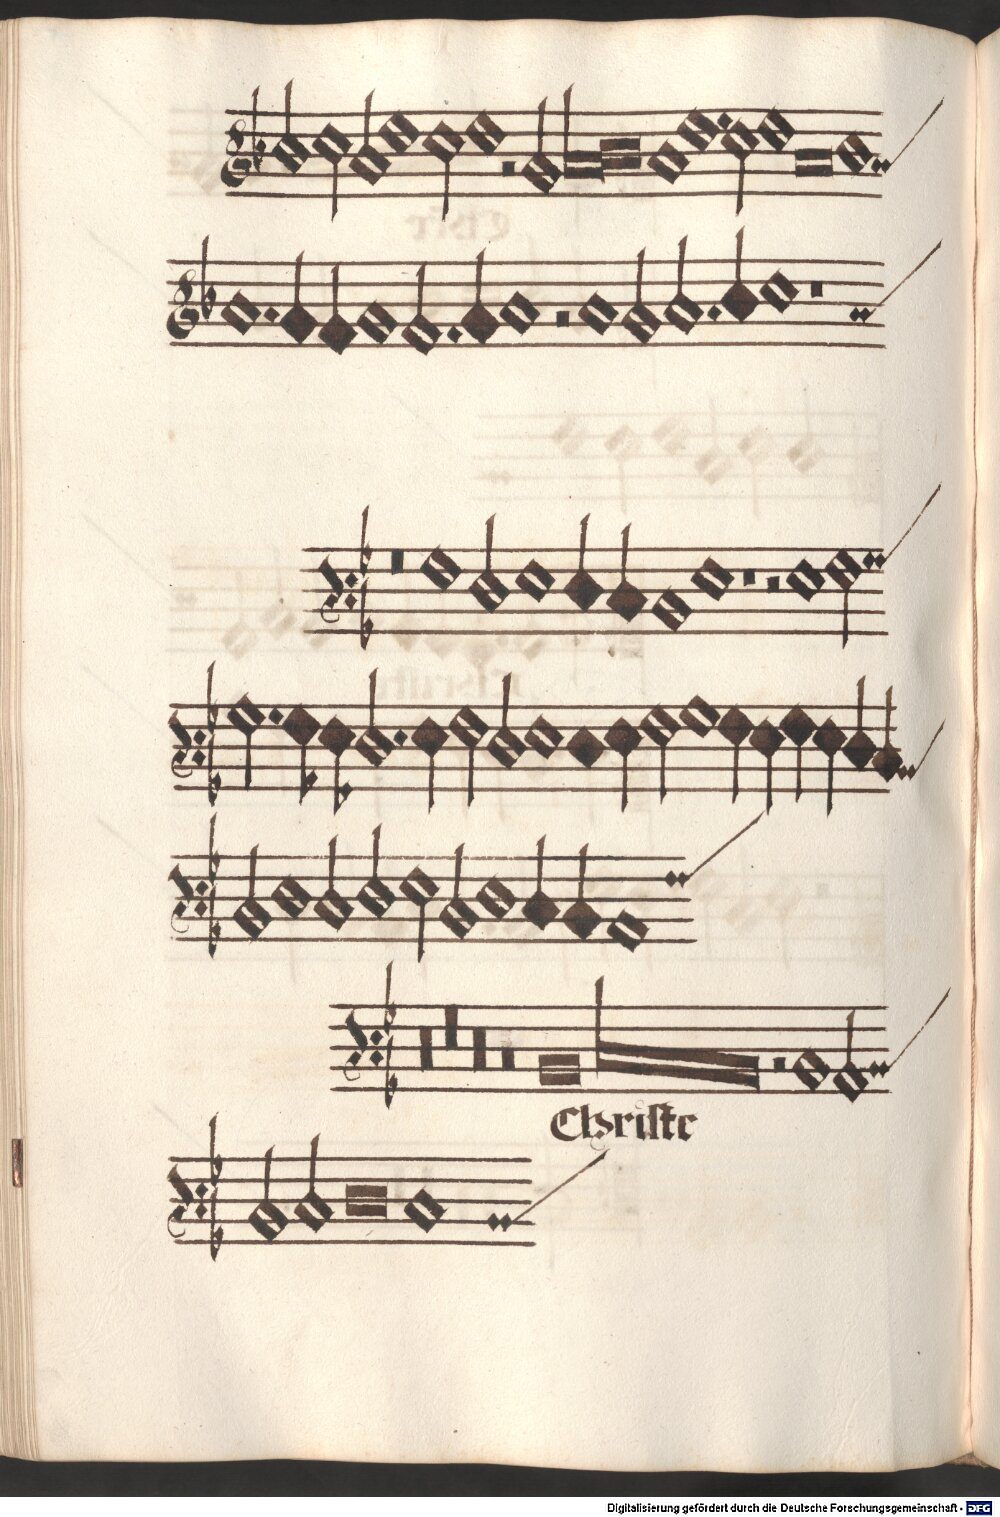 Christe
Digitalisierung gefördert durch die Deutsche Forschungsgemeinschaft - DFG